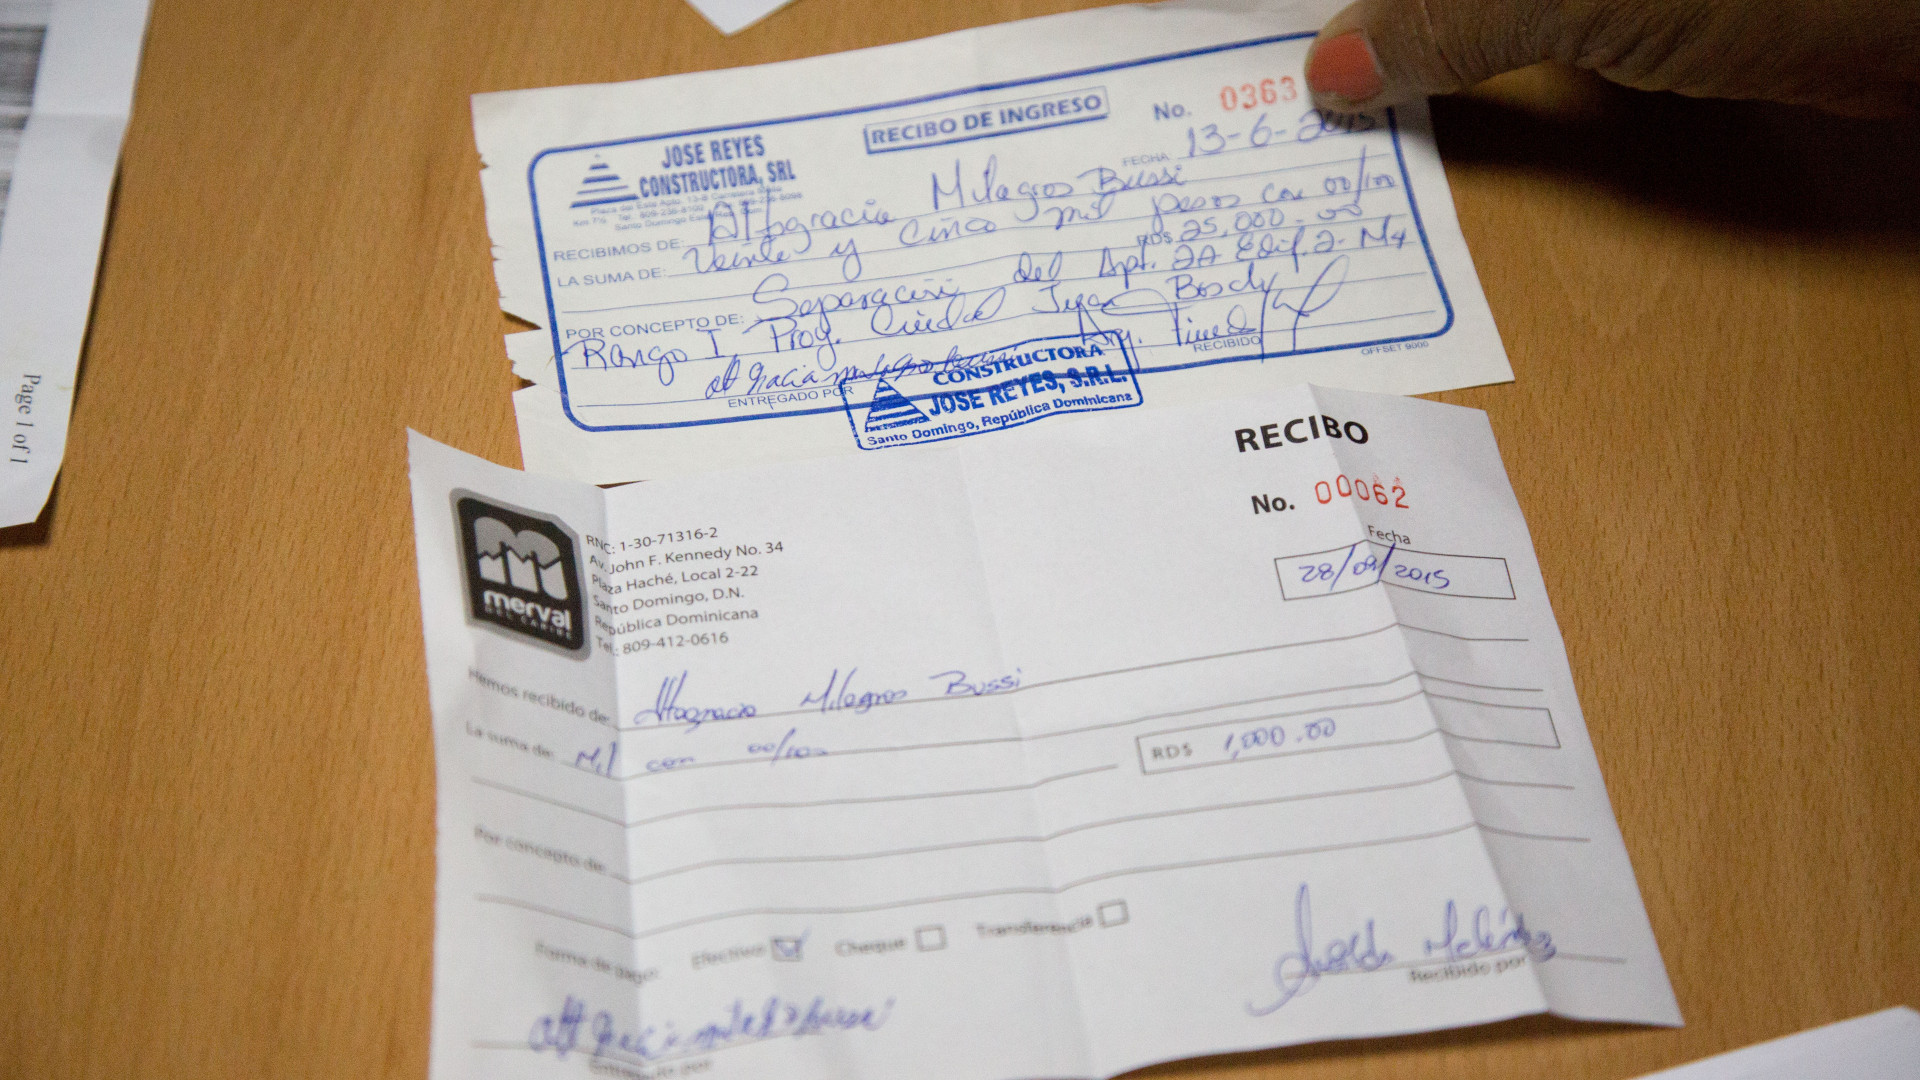 Page 1 of 1
JOSE REYES
CONSTRUCTORA, SRL
RECIBO DE INGRESO
No. 0363
FECHA 13-6-2015
RECIBIMOS DE: Altagracia Milagros Bussi
LA SUMA DE: Veinte y cinco mil pesos con 00/100
RD$ 25,000.00
POR CONCEPTO DE: Separación del Apt. 2A Edif. 2-M4
Rango I Proy. Ciudad Juan Bosch
RECIBIDO
OFFSET 9000
ENTREGADO POR
CONSTRUCTORA
JOSE REYES, S.R.L.
Santo Domingo, República Dominicana
RECIBO
No. 00062
Fecha
28/09/2015
merval
DEL CARIBE
RNC: 1-30-71316-2
Av. John F. Kennedy No. 34
Plaza Haché, Local 2-22
Santo Domingo, D.N.
República Dominicana
Tel.: 809-412-0616
Hemos recibido de: Altagracia Milagros Bussi
La suma de: Mil con 00/100
RD$ 1,000.00
Por concepto de:
Forma de pago: Efectivo Cheque Transferencia
Recibido por
Entregado por